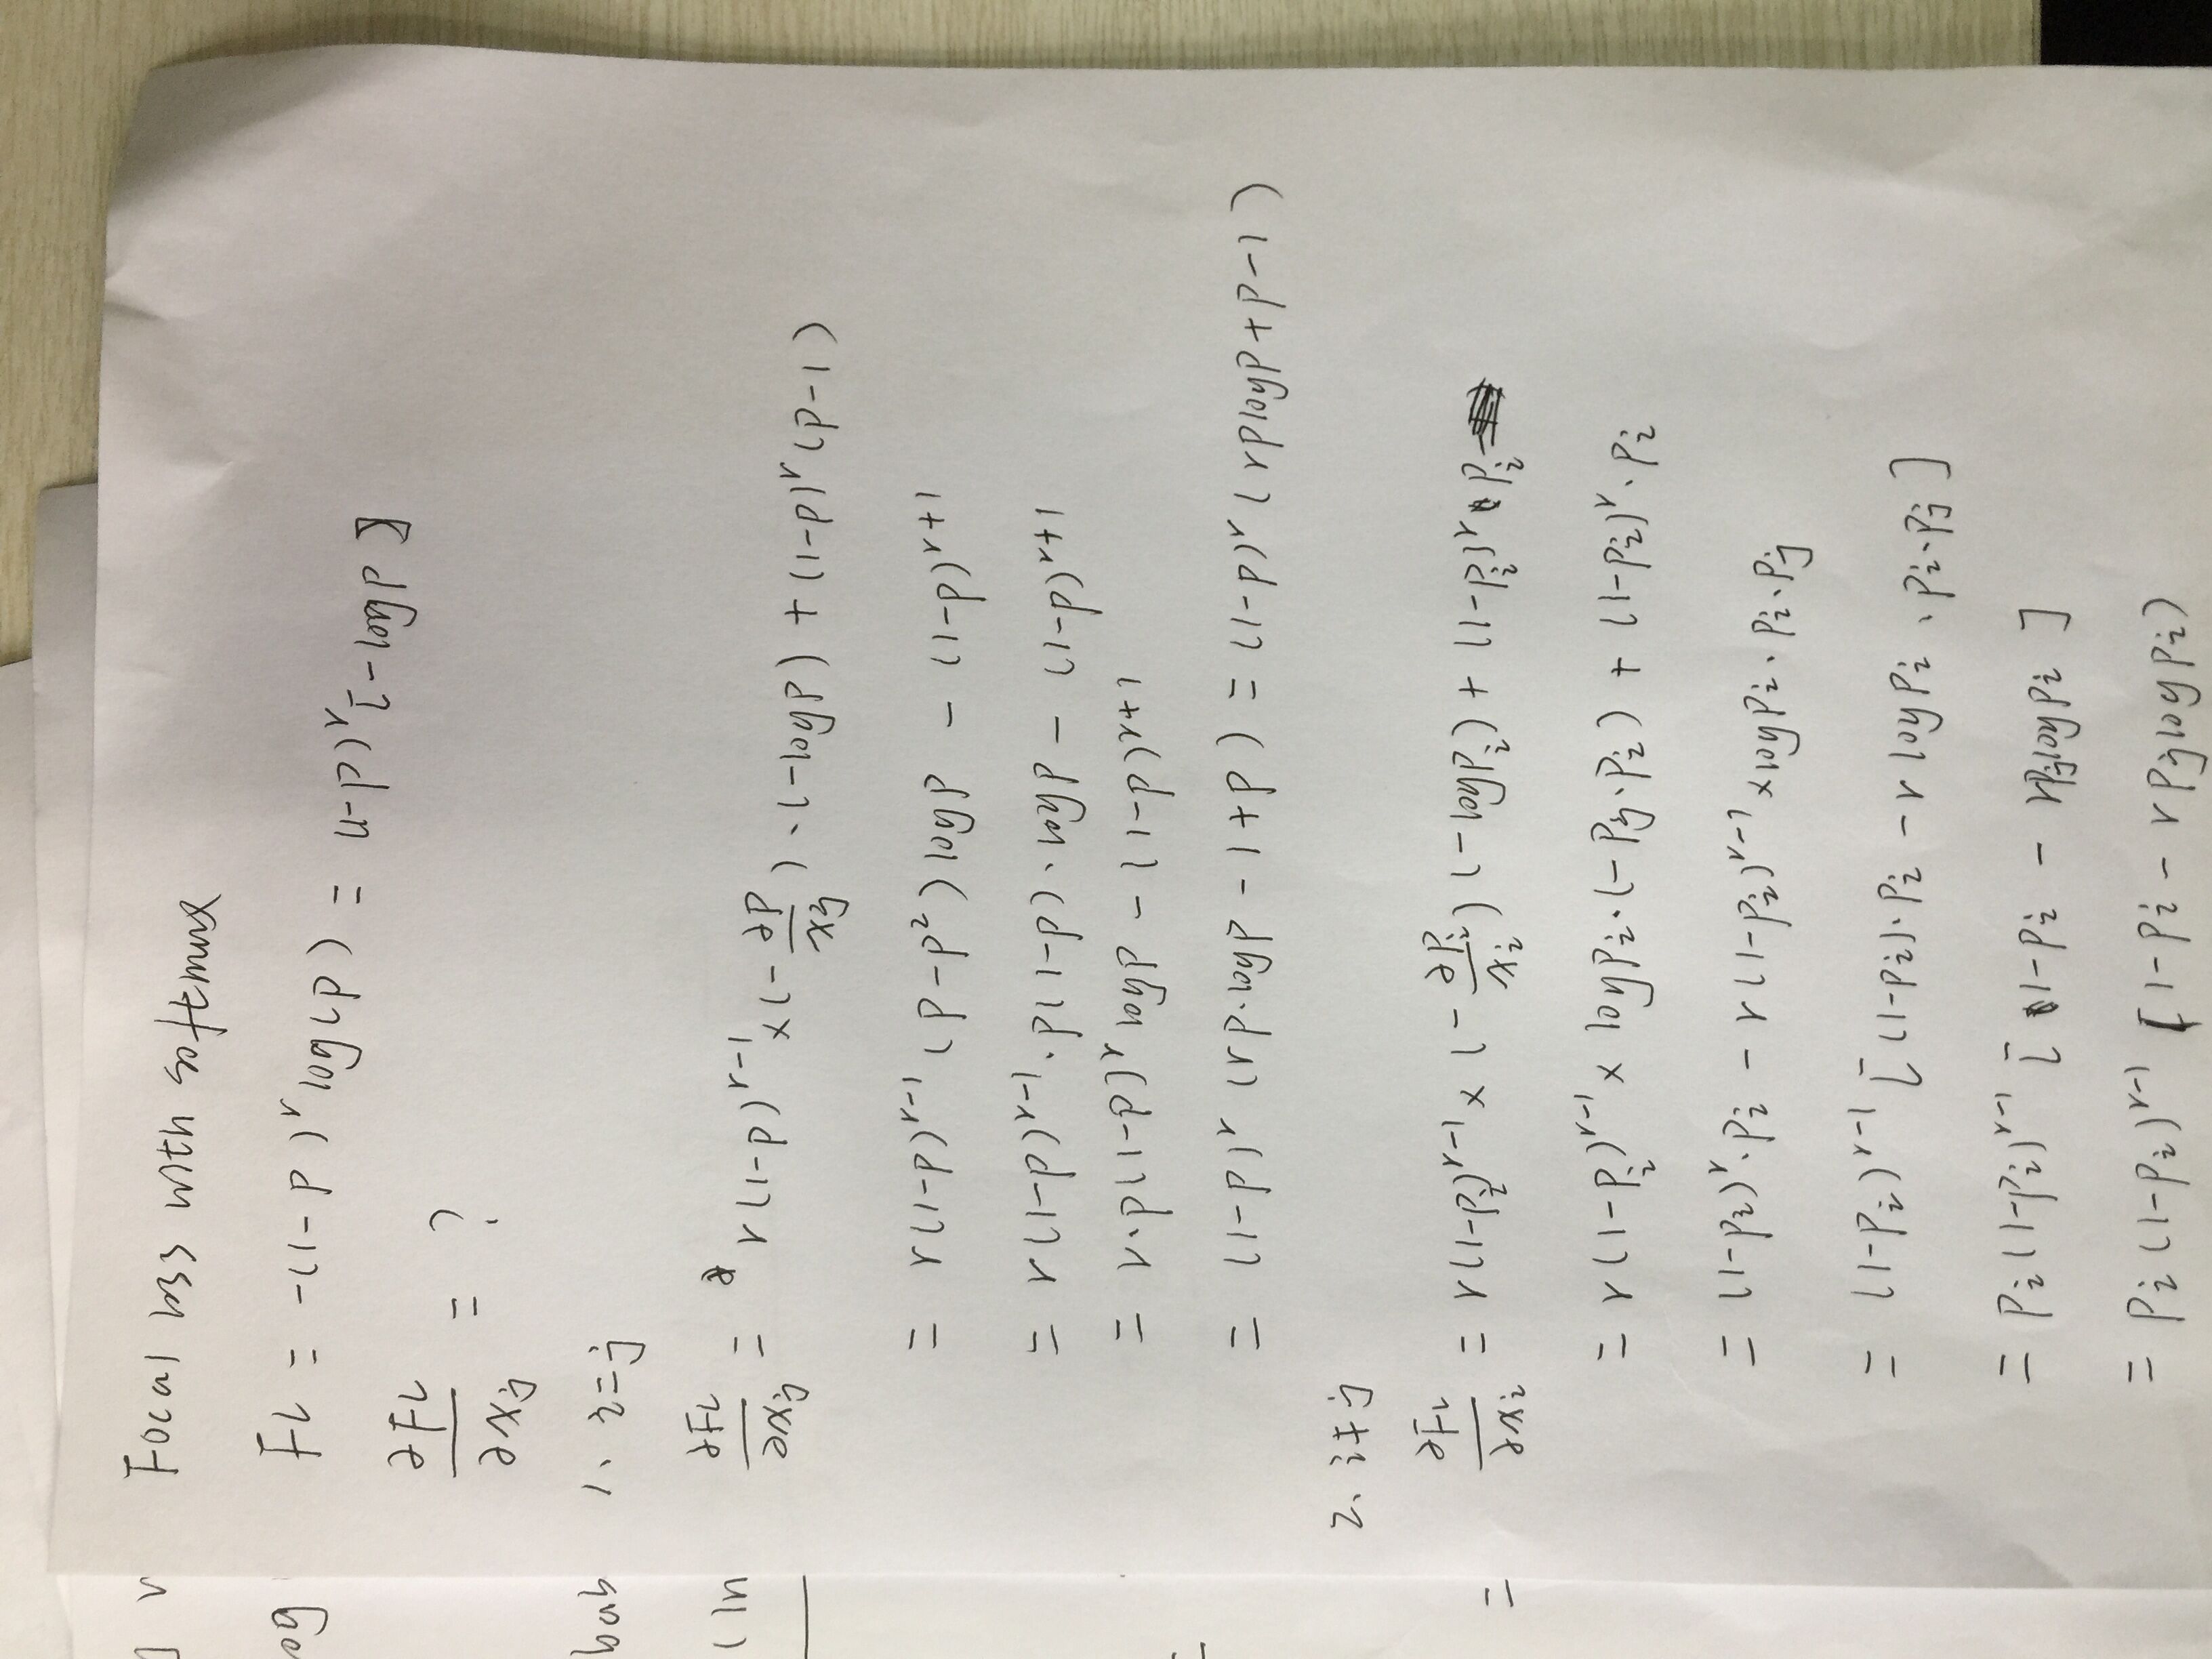 Focal loss with softmax
FL = -(1-p)^r log(p) = (1-p)^r [-log p]
∂FL/∂xj = ?
1、i=j
∂FL/∂xj = r(1-p)^{r-1} × (-∂p/xj)·(-logp) + (1-p)^r (p-1)
= r(1-p)^{r-1} (p-p²) logp - (1-p)^{r+1}
= r(1-p)^{r-1}·p(1-p)·logp - (1-p)^{r+1}
= r·p(1-p)^r logp - (1-p)^{r+1}
= (1-p)^r (rp·logp - 1+p) = (1-p)^r (rplogp+p-1)
2、i≠j
∂FL/∂xi = r(1-pi)^{r-1} × (-∂pi/xi) (-logpi) + (1-pi)^r · pi
= r(1-pi)^{r-1} × logpi·(-pj·pi) + (1-pi)^r·pi
= (1-pi)^r·pi - r(1-pi)^{r-1} × logpi·pi·pj
= (1-pi)^{r-1} [(1-pi)·pi - r logpi · pi·pj]
= pi(1-pi)^{r-1} [1-pi - rpjlogpi]
= pi(1-pi)^{r-1} (1-pi - rpjlogpi)
og
bab
(ln
=